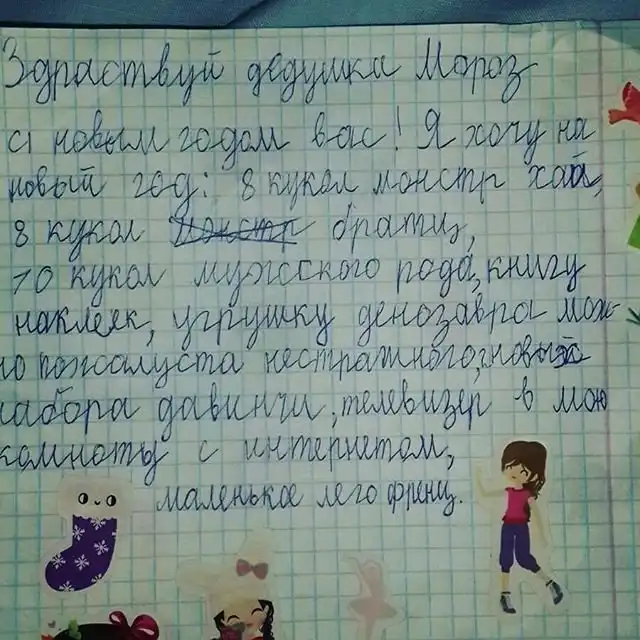 Здраствуй дедушка Мороз
с новым годом вас! Я хочу на
новый год: 8 кукол монстр хай,
8 кукол монстр братц,
10 кукол мужсского рода, книгу
наклеяк, угрушку денозавра мож-
но пожалуста нестрашного, новыго
набора давинчи, телевизер в мою
комноты с интернетом,
маленькое лего френц.